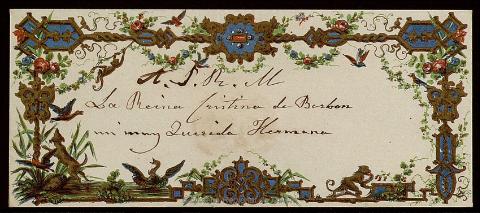 A. S. R. M
La Reina Cristina de Borbon
mi muy Querida Hermana